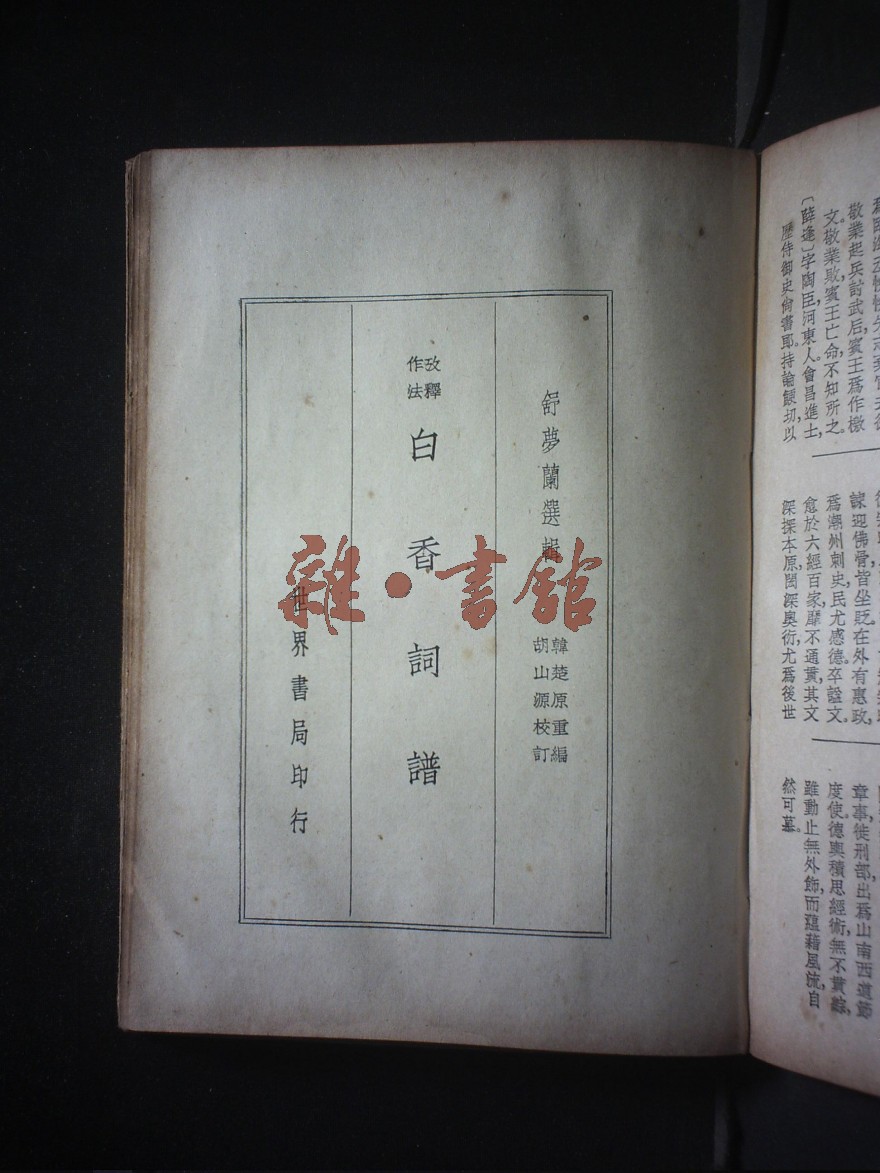 舒夢蘭選輯
韓楚原重編
胡山源校訂
攷釋
作法
白香詞譜
世界書局印行
雜·書館
敬業起兵討武后，賓王爲作檄
文。敬業敗，賓王亡命不知所之。
〔薛逢〕字陶臣，河東人。會昌進士，
歷侍御史尙書郎。持論鯁切，以
諫迎佛骨，皆坐貶。在外有惠政，
爲潮州刺史，民尤感德。卒諡文。
愈於六經百家，靡不通貫，其文
深探本原，閎深奧衍，尤爲後世
章事，徙刑部，出爲山南西道節
度使。德輿積思經術，無不貫綜，
雖動止無外飾，而蘊藉風流，自
然可慕。